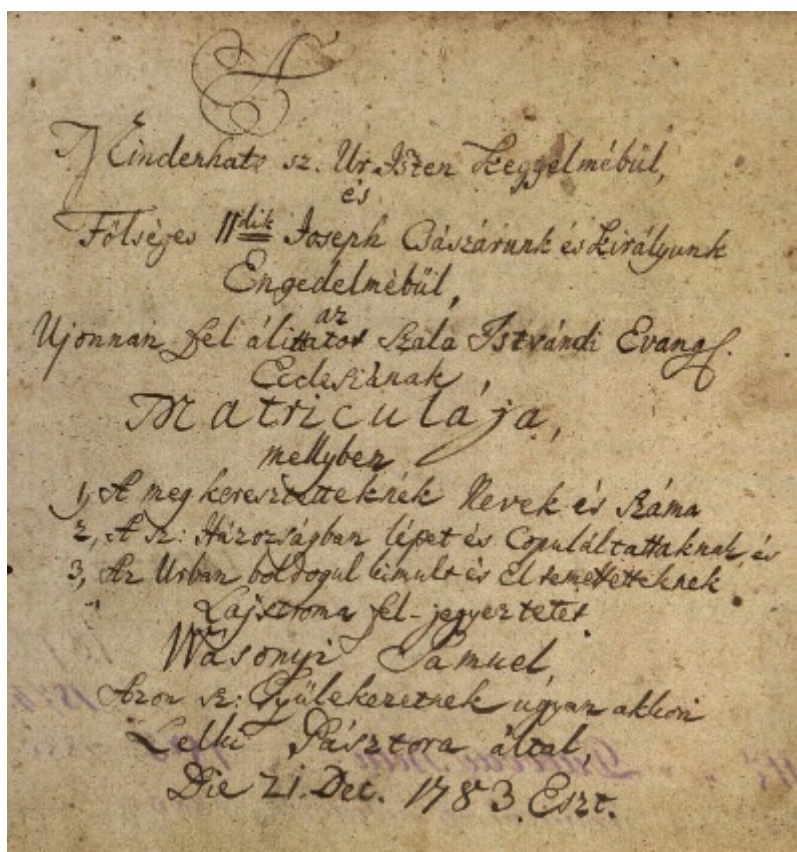 A
Mindenható sz. Ur Isten Keggyelmébül,
és
Fölséges IIdik Joseph Császárunk és Királyunk
Engedelmébül,
az
Ujonnan fel álittatot Szala Istvándi Evang.
Ecclesiának,
Matriculája,
mellyben
1, A meg keresztelteknek Nevek és Száma
2, A sz: Házozságban lépet és Copuláltattaknak, és
3, Az Urban boldogul kimult és El temettetteknek
Lajstroma fel-jegyeztetet
Wásonyi Sámuel
Azon sz: Gyülekezetnek ugyan akkori
Lelki Pásztora által,
Die 21. Dec. 1783. Eszt.